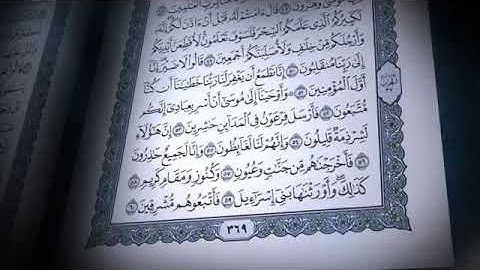 وَهَٰرُونَ ٤٨ قَالَ ءَامَنتُمْ لَهُۥ قَبْلَ أَنْ ءَاذَنَ لَكُمْ إِنَّهُۥ
لَكَبِيرُكُمُ ٱلَّذِي عَلَّمَكُمُ ٱلسِّحْرَ فَلَسَوْفَ تَعْلَمُونَ لَأُقَطِّعَنَّ أَيْدِيَكُمْ
وَأَرْجُلَكُم مِّنْ خِلَٰفٍ وَلَأُصَلِّبَنَّكُمْ أَجْمَعِينَ ٤٩ قَالُوا۟ لَا ضَيْرَ إِنَّآ
إِلَىٰ رَبِّنَا مُنقَلِبُونَ ٥٠ إِنَّا نَطْمَعُ أَن يَغْفِرَ لَنَا رَبُّنَا خَطَٰيَٰنَآ أَن كُنَّآ
أَوَّلَ ٱلْمُؤْمِنِينَ ٥١ ۞ وَأَوْحَيْنَآ إِلَىٰ مُوسَىٰٓ أَنْ أَسْرِ بِعِبَادِيٓ إِنَّكُم
مُّتَّبَعُونَ ٥٢ فَأَرْسَلَ فِرْعَوْنُ فِي ٱلْمَدَآئِنِ حَٰشِرِينَ ٥٣ إِنَّ هَٰٓؤُلَآءِ
لَشِرْذِمَةٌ قَلِيلُونَ ٥٤ وَإِنَّهُمْ لَنَا لَغَآئِظُونَ ٥٥ وَإِنَّا لَجَمِيعٌ حَٰذِرُونَ
٥٦ فَأَخْرَجْنَٰهُم مِّن جَنَّٰتٍ وَعُيُونٍ ٥٧ وَكُنُوزٍ وَمَقَامٍ كَرِيمٍ ٥٨
كَذَٰلِكَ وَأَوْرَثْنَٰهَا بَنِيٓ إِسْرَٰٓءِيلَ ٥٩ فَأَتْبَعُوهُم مُّشْرِقِينَ ٦٠
٣٦٩